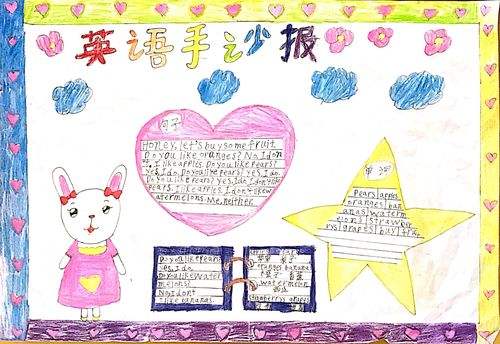 英语手沙报
句子
Honey, let's buy some fruit.
Do you like oranges? No, I don
't. I like apples. Do you like Pears?
Yes, I do. Do you like Pears? yes, I do.
Do you like Pears? yes, I do. I don't like
Pears. I like apples. I don't
atermelons. Me, neither.
单词
Pears apples
oranges ban
anas waterm
elons strawber
rys grapes buy
Do you like Pears
yes, I do.
Do you like water
melons?
No, I don't
I like bananas.
苹果 梨子
oranges bananas
橘子 香蕉
watermelon
西瓜
stanberrys grapes